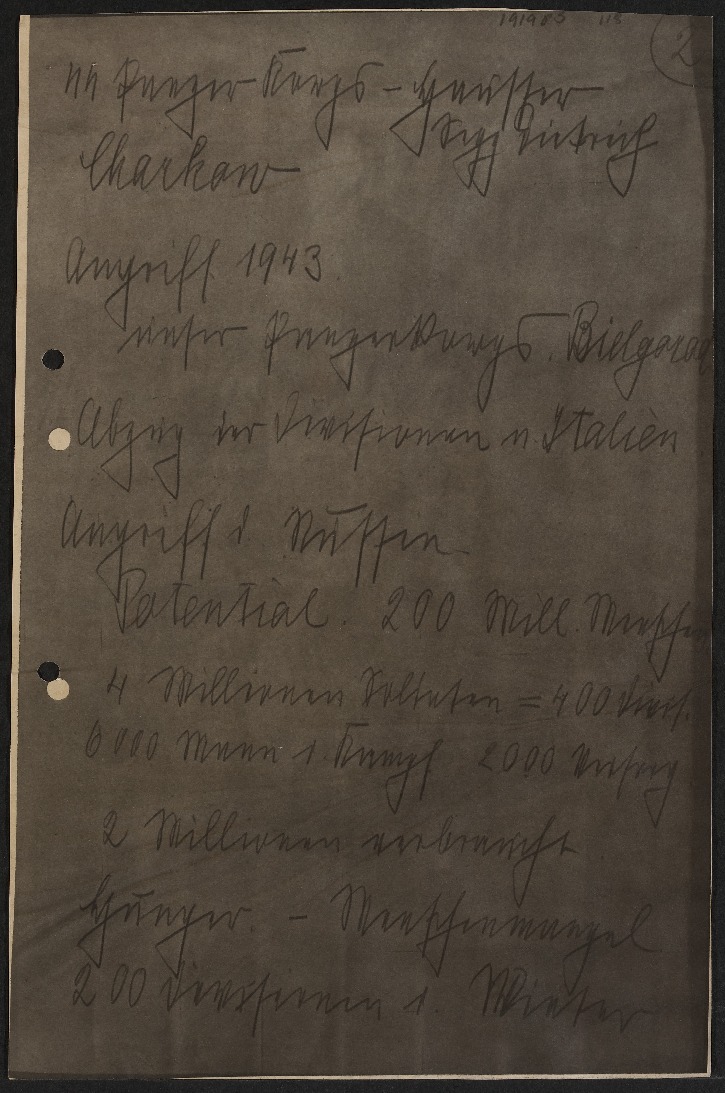 191983 118
2
SS Panzer Korps – Hausser
Sepp Dietrich
Charkow
Angriff 1943
unser Panzerkorps. Bielgorod
Abzug der Divisionen n. Italien
Angriff d. Russen
Potential. 200 Mill. Menschen
4 Millionen Soldaten = 400 Divis.
6000 Mann i. Kampf 2000 Versorg
2 Millionen verbraucht
Hunger. – Menschenmangel
200 Divisionen i. Winter